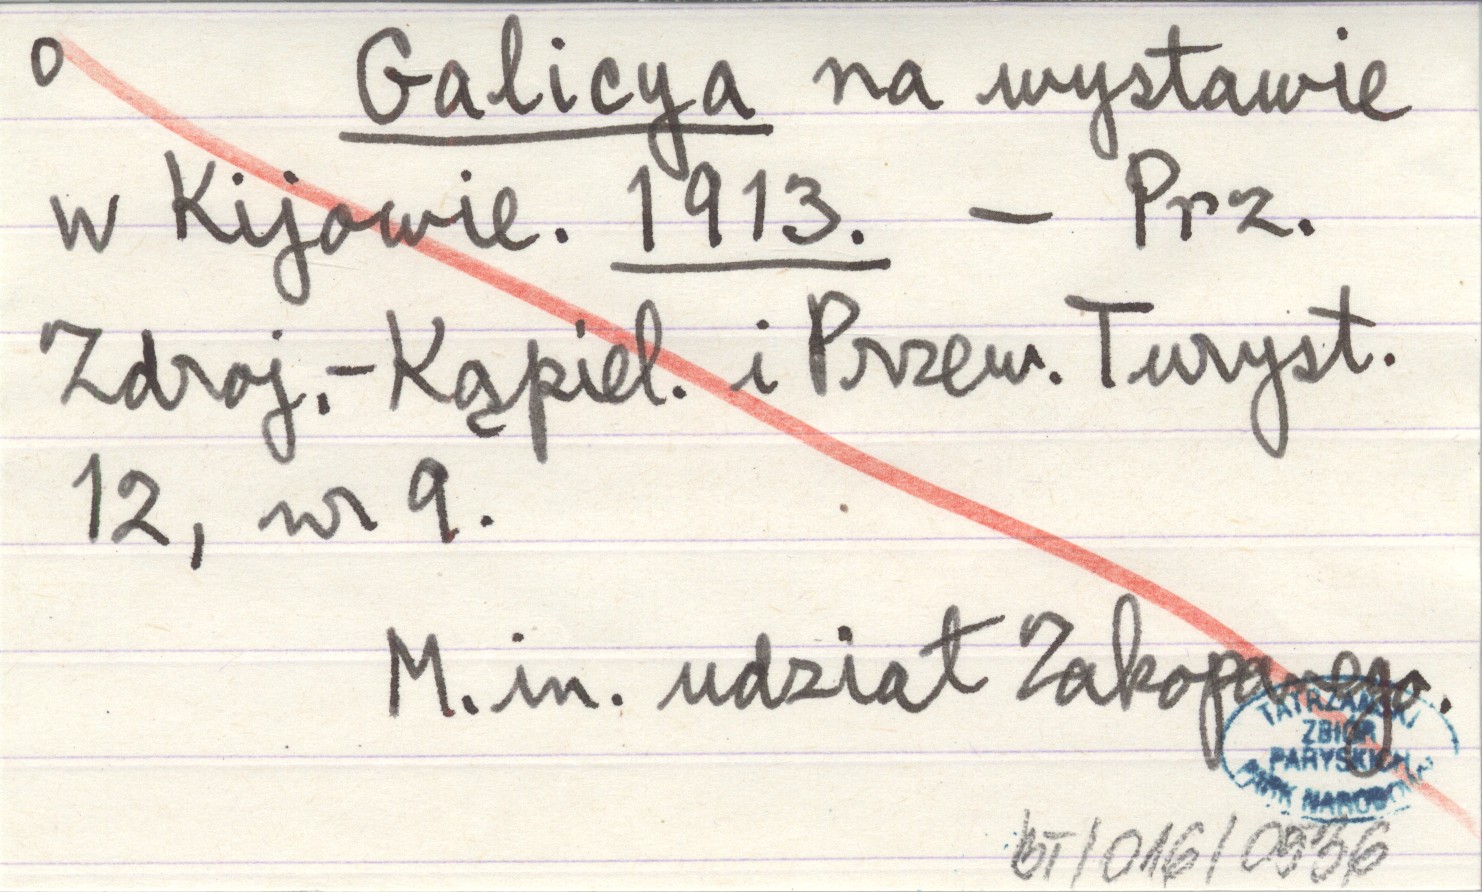 o Galicya na wystawie
w Kijowie. 1913. — Prz.
Zdroj.-Kąpiel. i Przew. Turyst.
12, nr 9.
M. in. udział Zakopanego.
TATRZAŃSKI
ZBIÓR
PARYSKICH
PARK NARODOWY
bT/016/0936